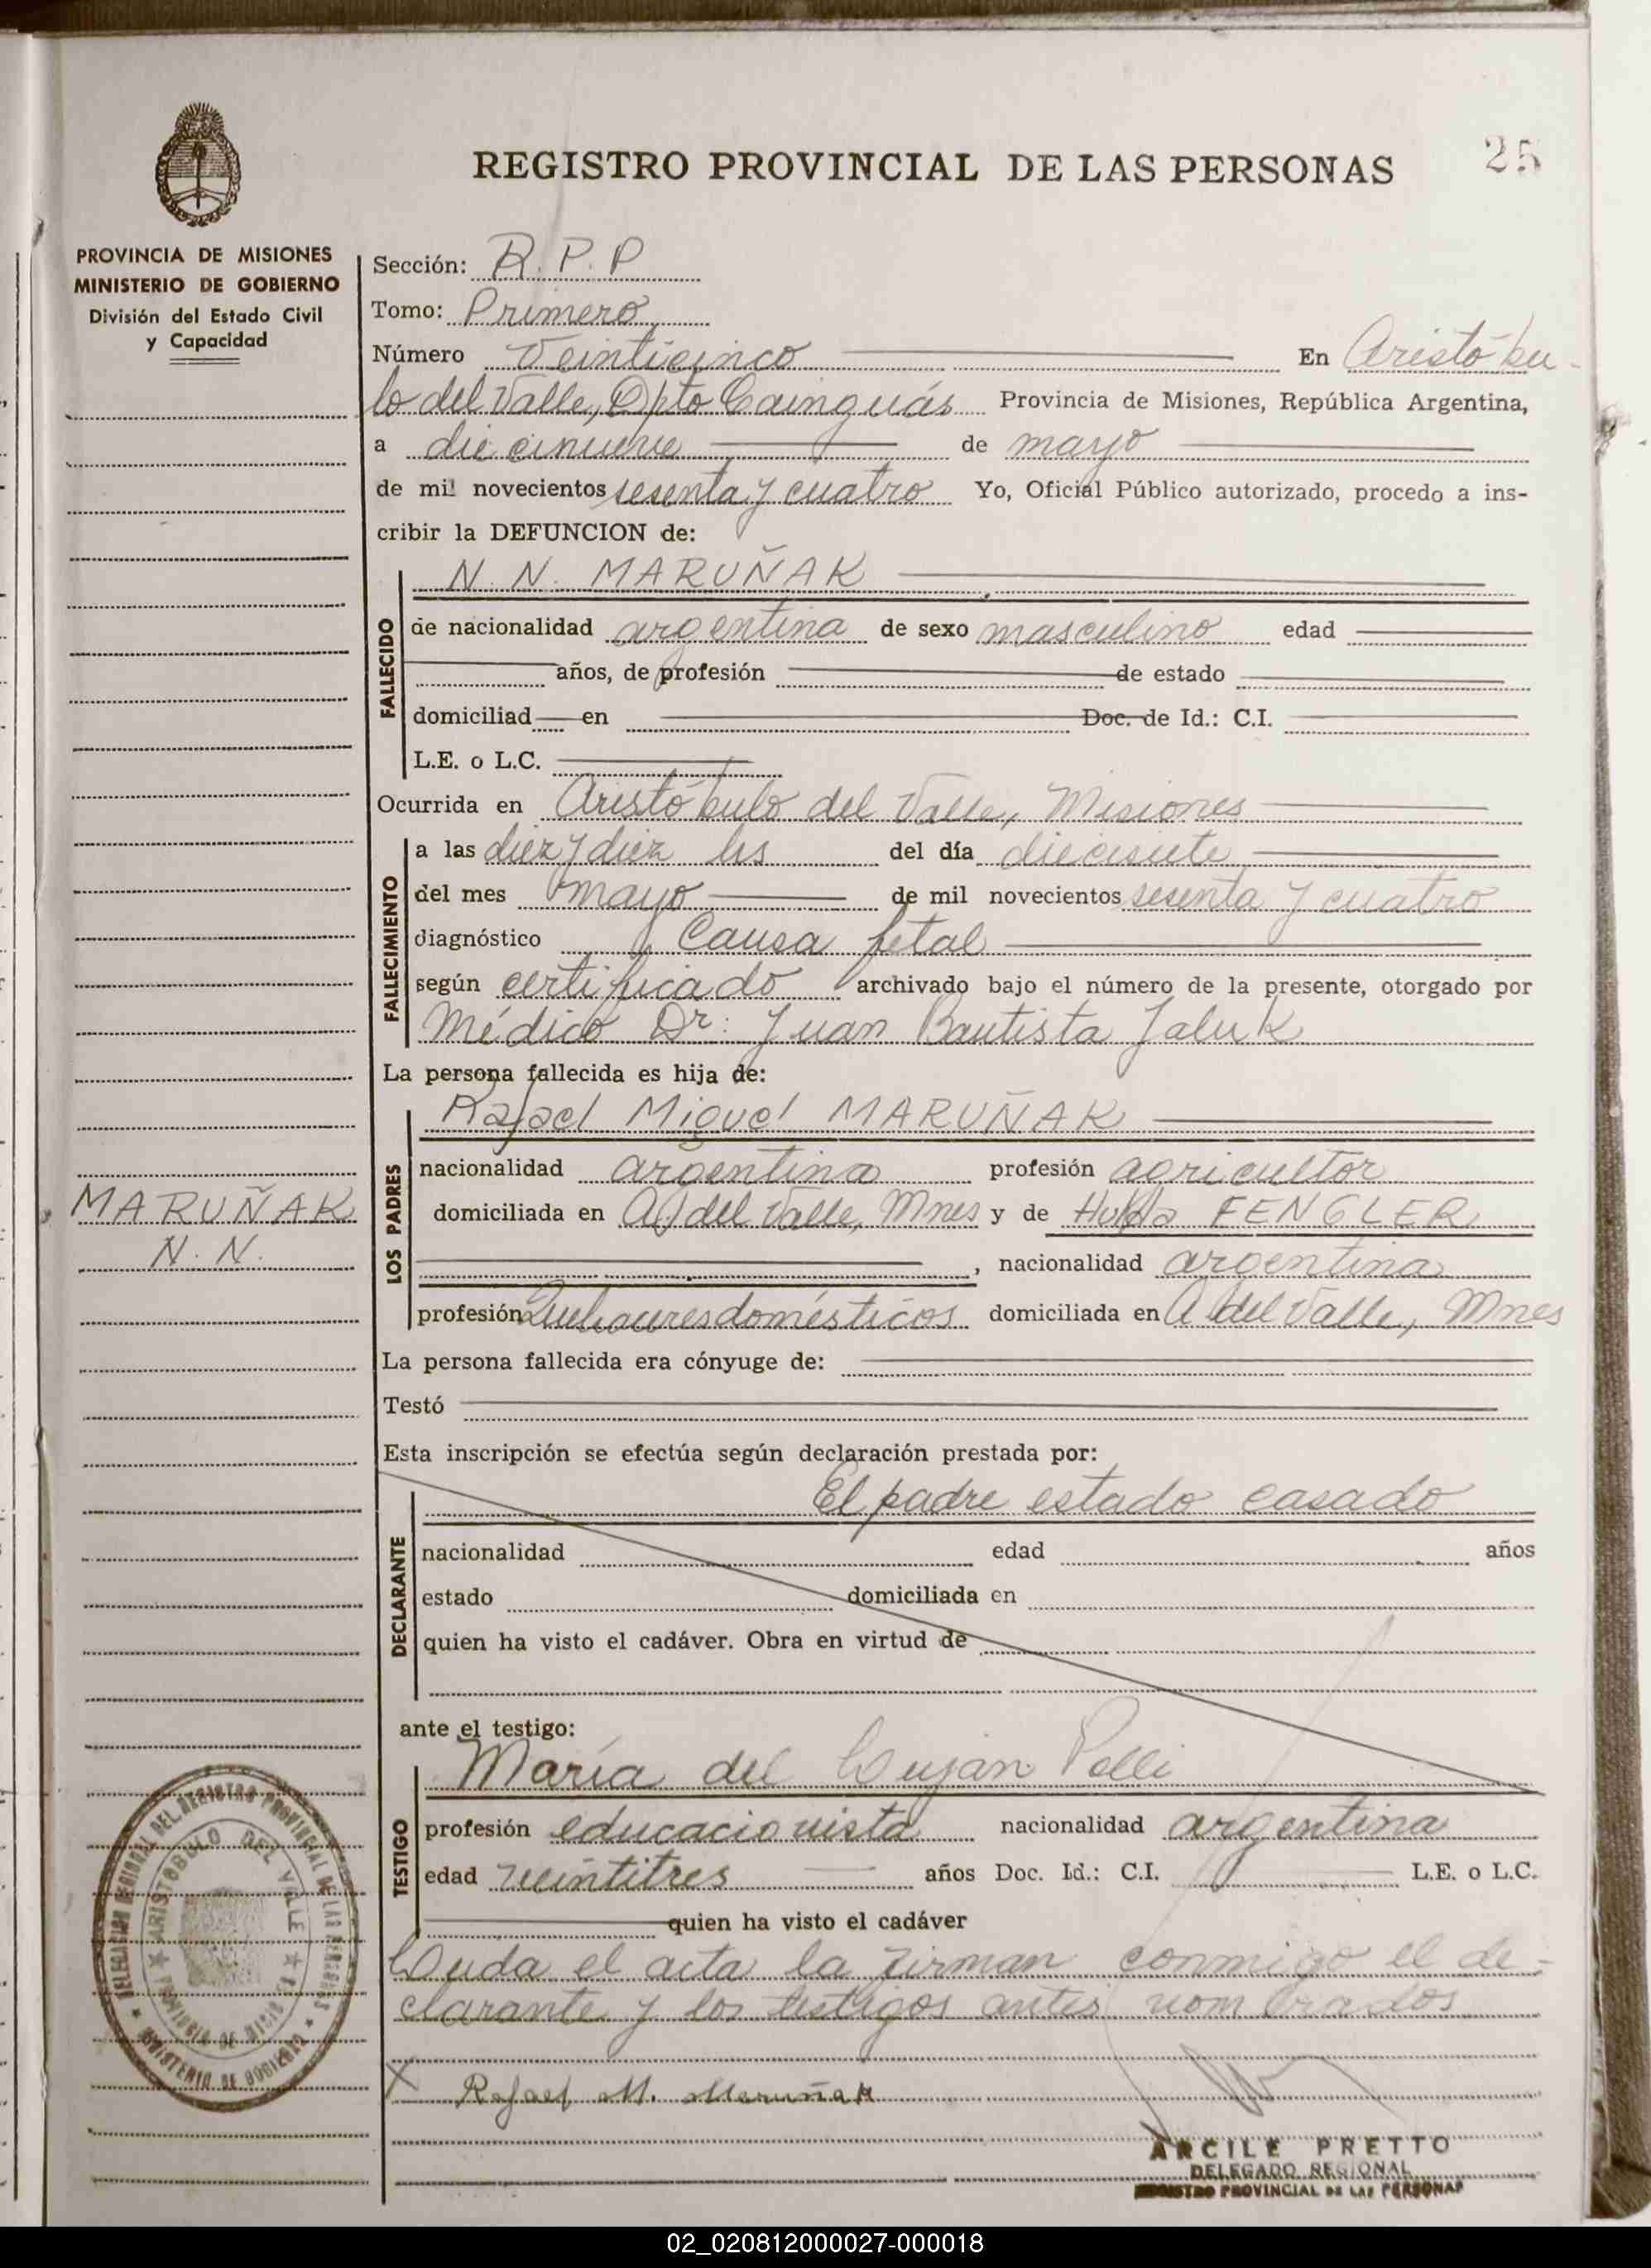 25
REGISTRO PROVINCIAL DE LAS PERSONAS
PROVINCIA DE MISIONES
MINISTERIO DE GOBIERNO
División del Estado Civil
y Capacidad
Sección: R.P.P
Tomo: Primero
Número Veinticinco En Aristóbu-
lo del Valle, Dpto Cainguás Provincia de Misiones, República Argentina,
a diecinueve de mayo
de mil novecientos sesenta y cuatro Yo, Oficial Público autorizado, procedo a ins-
cribir la DEFUNCION de:
N. N. MARUÑAK
FALLECIDO
de nacionalidad argentina de sexo masculino edad
años, de profesión de estado
domiciliad en Doc. de Id.: C.I.
L.E. o L.C.
Ocurrida en Aristóbulo del Valle, Misiones
FALLECIMIENTO
a las diez y diez hs del día diecisiete
del mes mayo de mil novecientos sesenta y cuatro
diagnóstico Causa fetal
según certificado archivado bajo el número de la presente, otorgado por
Médico Dr: Juan Bautista Jaluk
La persona fallecida es hija de:
Rafael Miguel MARUÑAK
LOS PADRES
nacionalidad argentina profesión agricultor
domiciliada en A del Valle, Mnes y de Hulda FENGLER
, nacionalidad argentina
profesión Quehaceres domésticos domiciliada en A del Valle, Mnes
MARUÑAK
N. N.
La persona fallecida era cónyuge de:
Testó
Esta inscripción se efectúa según declaración prestada por:
El padre estado casado
DECLARANTE
nacionalidad edad años
estado domiciliada en
quien ha visto el cadáver. Obra en virtud de
ante el testigo:
María del Lujan Polli
TESTIGO
profesión educacionista nacionalidad argentina
edad veintitres años Doc. Id.: C.I. L.E. o L.C.
quien ha visto el cadáver
Leida el acta la firman conmigo el de-
clarante y los testigos antes nombrados
X Rafael M. Maruñak
ARCILE PRETTO
DELEGADO REGIONAL
REGISTRO PROVINCIAL DE LAS PERSONAS
DELEGACION REGIONAL DEL REGISTRO PROVINCIAL DE LAS PERSONAS
ARISTOBULO DEL VALLE
MINISTERIO DE GOBIERNO
02_020812000027-000018